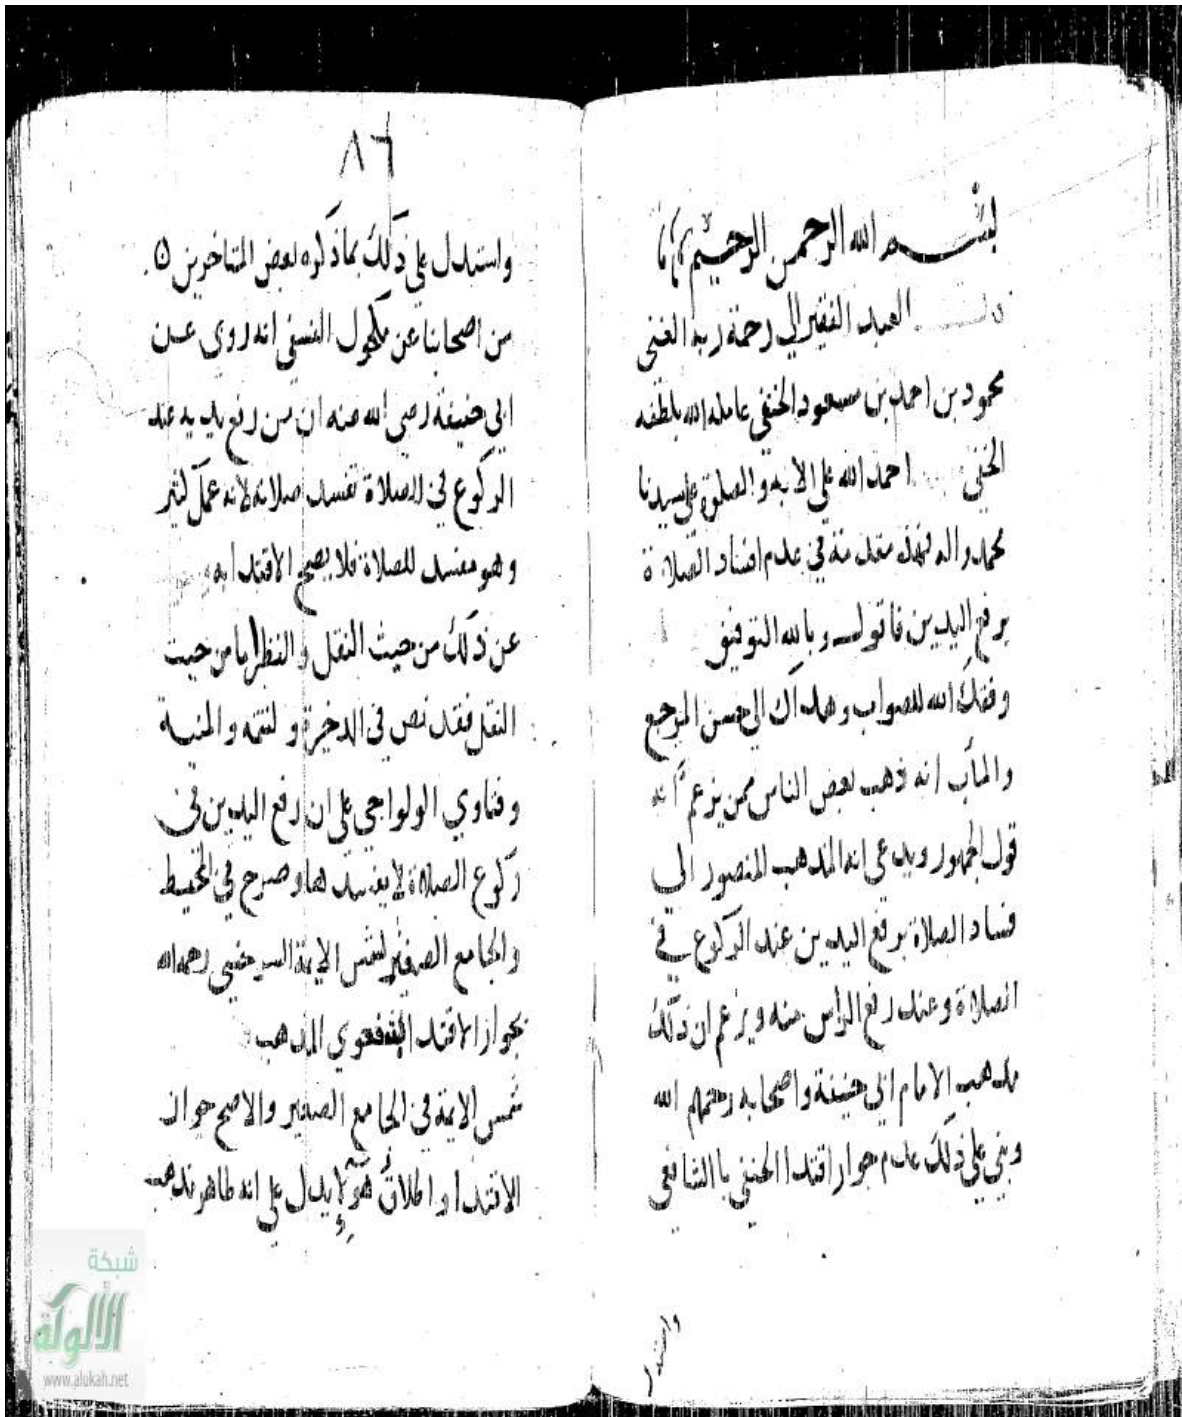 بسم الله الرحمن الرحيم
العبد الفقير الي رحمة ربه الغني
محمود بن احمد بن مسعود الحنفي عامله الله بلطفه
الخفي احمد الله علي الايه والصلوة علي سيدنا
محمد واله فهذه مقدمة في عدم افساد الصلاة
برفع اليدين فاقول وبالله التوفيق
وفقك الله للصواب وهداك الي حسن المرجع
والمأب انه ذهب بعض الناس ممن يزعم انه
قول الجمهور ويدعي انه المذهب المنصور الي
فساد الصلاة برفع اليدين عند الركوع في
الصلاة وعند رفع الراس منه ويزعم ان ذلك
مذهب الامام ابي حنيفة واصحابه رحمهم الله
وبني علي ذلك عدم جواز اقتدا الحنفي باالشافعي
واستدل
٨٦
واستدل علي ذلك بما ذكره بعض المتاخرين
من اصحابنا عن مكحول النسفي انه روي عن
ابي حنيفة رضي الله عنه ان من رفع يديه عند
الركوع في الصلاة تفسد صلاته لانه عمل كثير
وهو مفسد للصلاة فلا يصح الاقتدا به
عن ذلك من حيث النقل والنظر اما من حيث
النقل فقد نص في الذخيرة والتتمه والمنية
وفتاوي الولوالجي علي ان رفع اليدين في
ركوع الصلاة لا يفسدها وصرح في المحيط
والجامع الصغير لشمس الايمة السرخسي رحمه الله
بجواز الاقتدا بشفعوي المذهب
شمس الايمة في الجامع الصغير والاصح جواز
الاقتدا واطلاق هؤلإء يدل علي انه ظاهر مذهب
شبكة
الألوكة
www.alukah.net